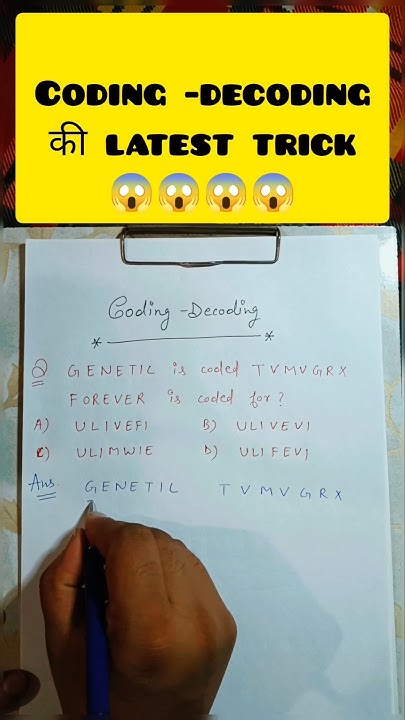 CODING -DECODING
की LATEST TRICK
Coding -Decoding
Q GENETIL is coded TVMVGRX
FOREVER is coded for?
A) ULIVEFI B) ULIVEVI
C) ULIMWIE D) ULIFEVI
Ans. GENETIL TVMVGRX